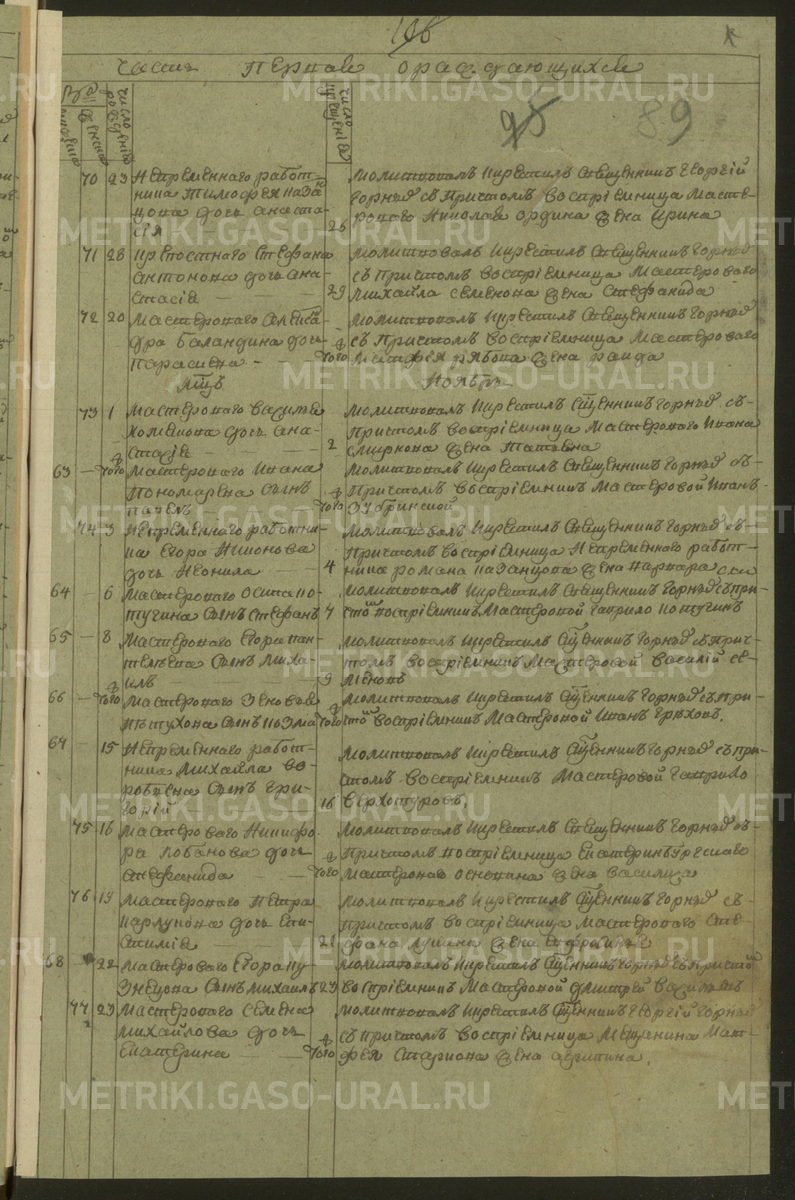 106
часть первая о раждающихся
95 89
число рожде
70 23 Непременнаго работ-
ника Тимофея Казан
цова дочь Анаста-
сія
25
Молитвовалъ и крестилъ священникъ Георгій
Горныхъ съ причтомъ воспріемница масте-
роваго Николая Ордина жена Ирина
71 28 Крепостнаго Стефана
Антонова дочь Ана-
стасія
29
Молитвовалъ и крестилъ священникъ Горныхъ
съ причтомъ воспріемница мастероваго
Михайла Семенова жена Стефанида
72 20 Мастероваго Алекса
дра Баландина дочь
Параскева
Того
Молитвовалъ и крестилъ священникъ Горныхъ
съ причтомъ воспріемница мастероваго
Матфея Рябова жена
Мцъ Ноябрь
73 1 Мастероваго
дочь Ана-
стасія
2
Молитвовалъ и крестилъ сщенникъ Горныхъ съ
причтомъ воспріемница мастероваго Ивана
Смирнова жена Татьяна
63 Того Мастероваго Ивана
Пономарева сынъ
Павелъ
Того
Молитвовалъ и крестилъ священникъ Горныхъ съ
причтомъ воспріемникъ мастеровой Иванъ
74 3 Непременнаго работни-
ка Егора Никонова
дочь Неонила
4
Молитвовалъ и крестилъ священникъ Горныхъ съ
причтомъ воспріемница непременнаго работ-
ника Романа Казанцова жена Варвара
64 6 Мастероваго Осипа Ко-
тугина сынъ Стефанъ
7
Молитвовалъ и крестилъ священникъ Горныхъ съ при-
чтомъ воспріемникъ мастеровой Гаврило Котугинъ
65 8 Мастероваго Егора Пан-
телеева сынъ Миха-
илъ
9
Молитвовалъ и крестилъ сщенникъ Горныхъ съ прич-
томъ воспріемникъ мастеровой Василій Се-
меновъ
66 Того Мастероваго Зеновья
Петухова сынъ Козма
Того
Молитвовалъ и крестилъ сщенникъ Горныхъ съ при-
чтомъ воспріемникъ мастеровой Иванъ Греховъ.
67 15 Непременнаго работ-
ника Михайла Во-
робьева сынъ Гри-
горій
16
Молитвовалъ и крестилъ сщенникъ Горныхъ съ при-
чтомъ воспріемникъ мастеровой Гаврило
Верхотуровъ.
75 16 Мастероваго Никифо-
ра Лобанова дочь
Стефанида
Того
Молитвовалъ и крестилъ священникъ Горныхъ съ
причтомъ воспріемница Екатеринбургскаго
мастероваго жена Василиса
76 19 Мастероваго Петра
Карпукова дочь Епи-
стимія
21
Молитвовалъ и крестилъ сщенникъ Горныхъ съ
причтомъ воспріемница мастероваго Сте-
фана Лукина жена Евфросинья
68 22 Мастероваго Егора Ку-
знецова сынъ Михаилъ
23
Молитвовалъ и крестилъ сщенникъ Горныхъ съ причто
воспріемникъ мастеровой Дмитрей
77 23 Мастероваго Семена
Михайлова дочь
Екатерина
Того
Молитвовалъ и крестилъ сщенникъ Георгій Горныхъ
съ причтомъ воспріемница мещанина Мат-
фея Старкова жена
METRIKI.GASO-URAL.RU